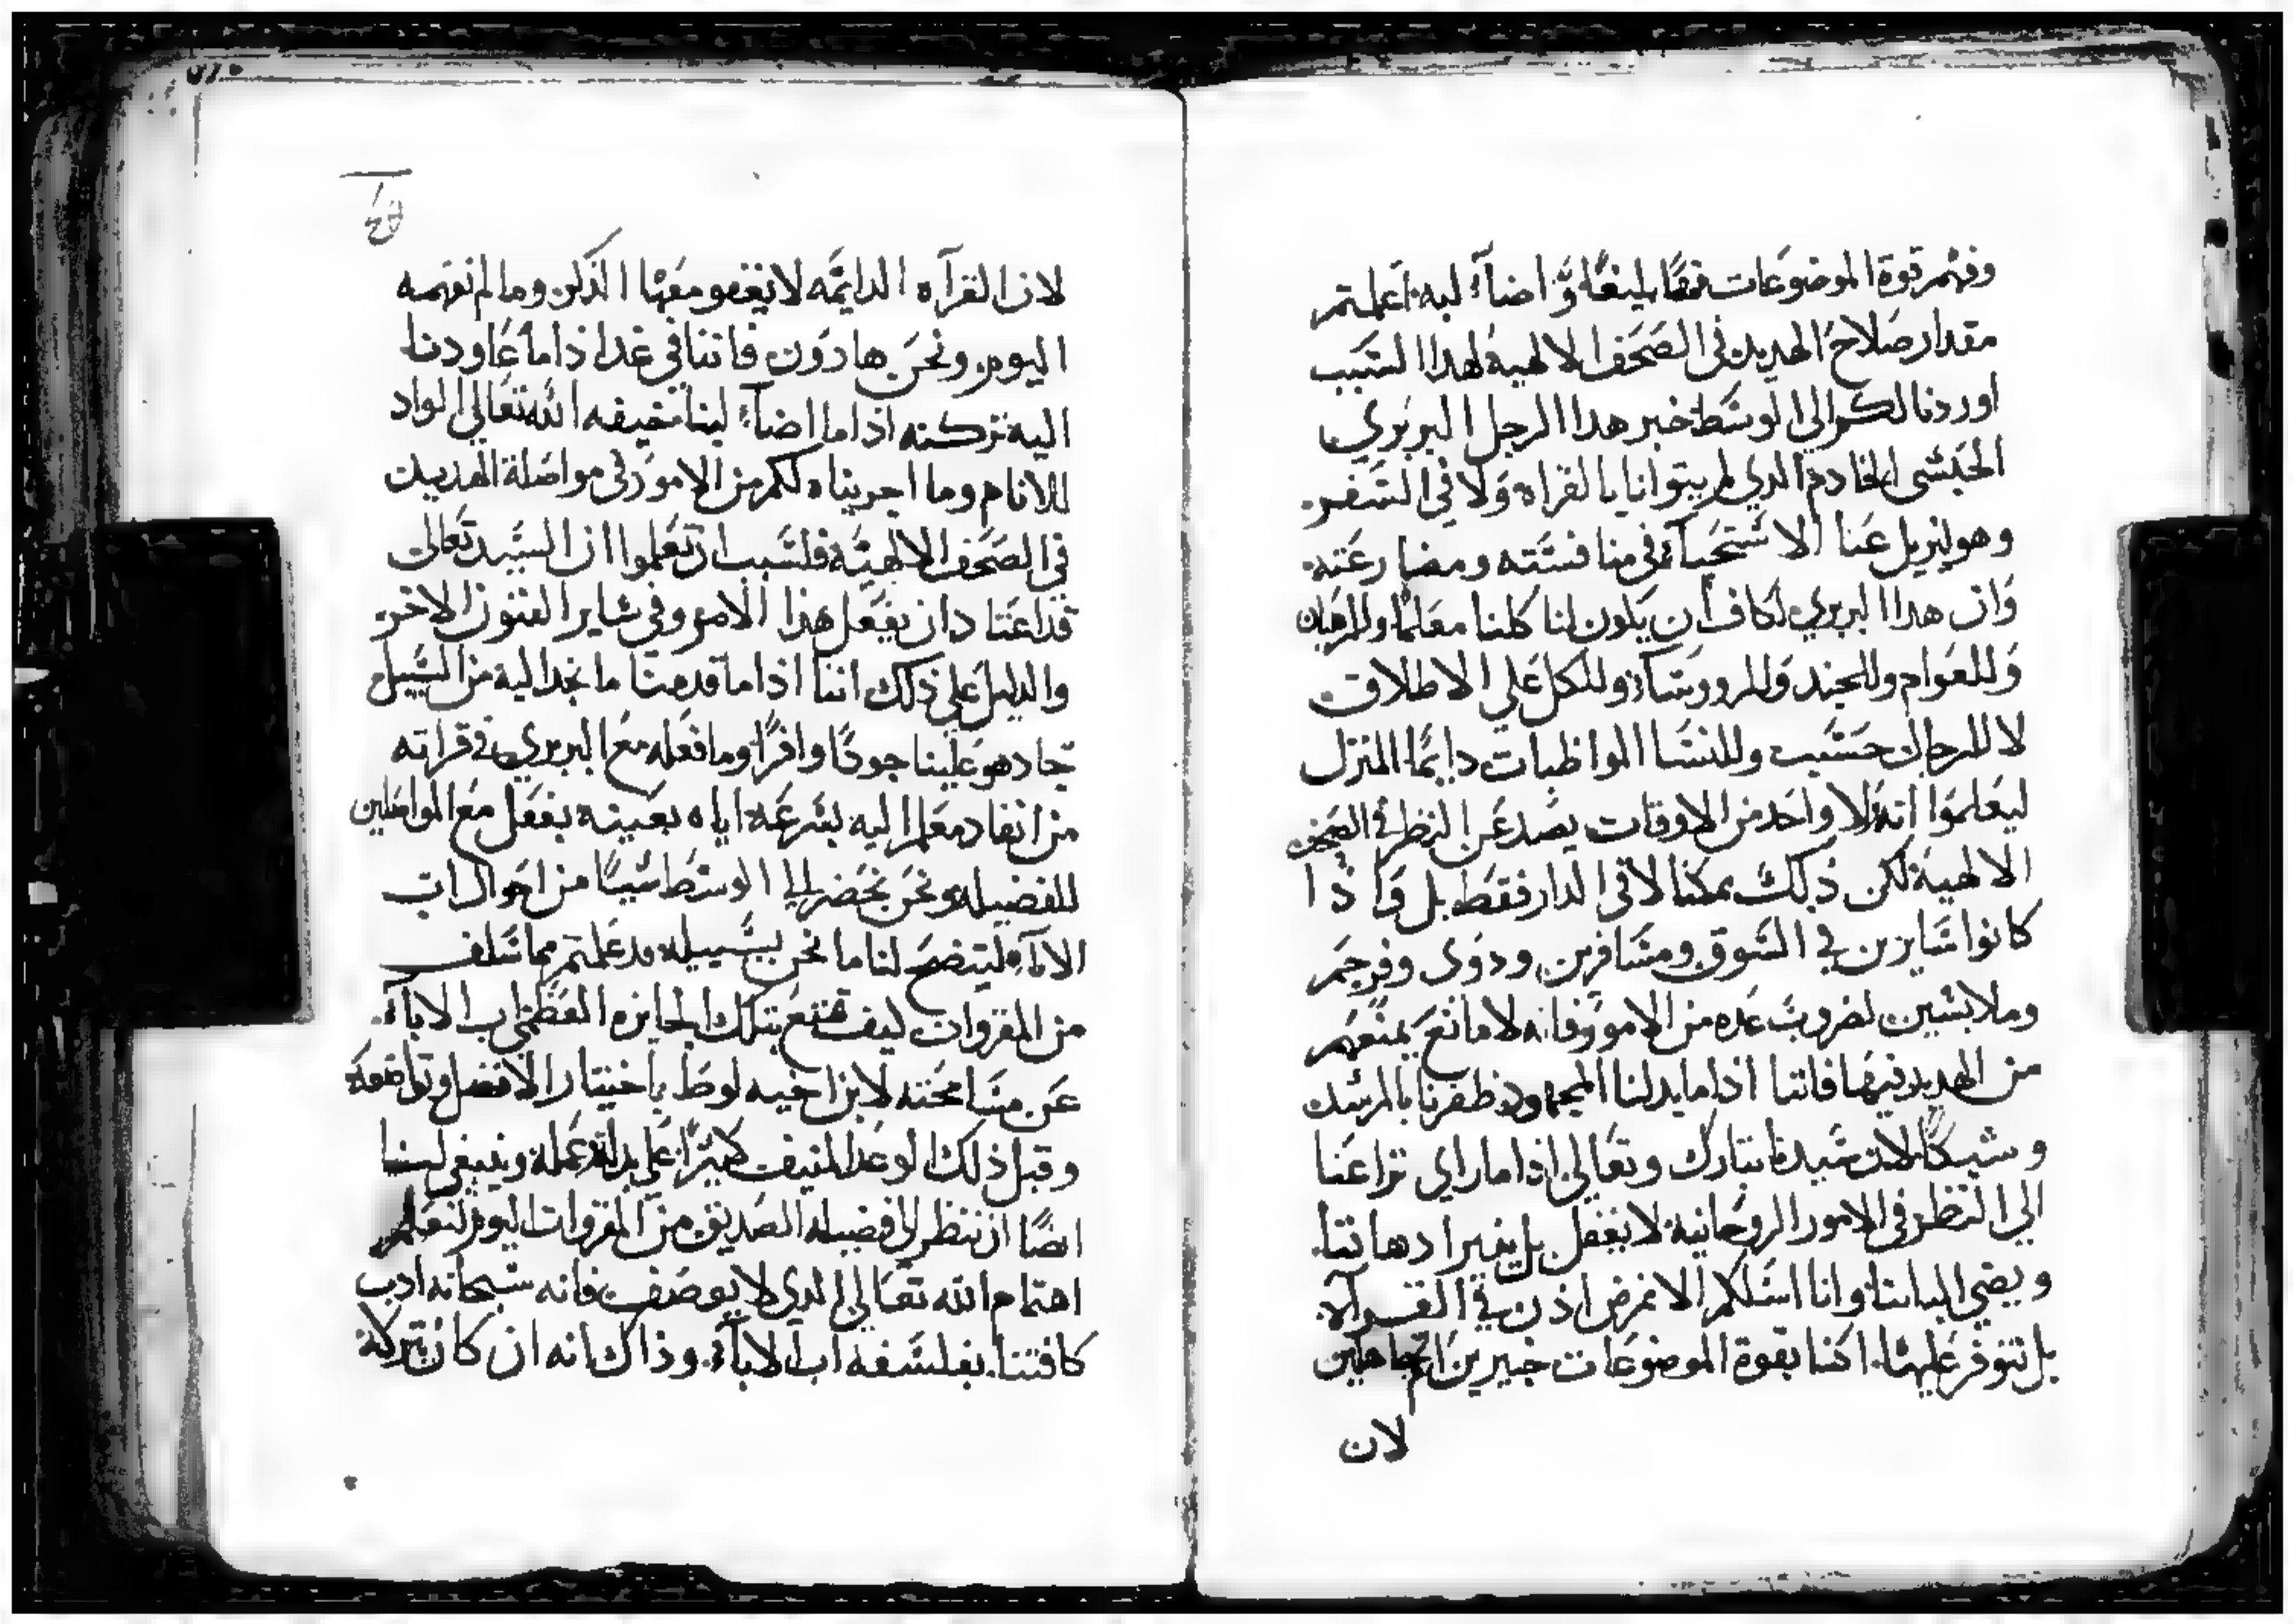 وفهم قوة الموضوعات فهمًا بليغًا وَّاضاء لبه اعلمتم
مقدار صلاح الهديد في الصحف الالهية لهدا السَبب
اوردنا لكم الي الوسَط خبر هدا الرجل البربري
الحبشي الخادم الدي لم يتوانا بالقراه وَلا في السَفر
وهو ليزيل عَنا الاستحيآ في منافسَته ومضارعَته
وَان هدا البربري لكاف أن يكون لنا كلنا معَلمًا وللرهبان
وَللعَوام وللجند وَللرووسَاء وللكل عَلي الاطلاق
لا للرجال حسَب وللنسَا المواظبات دايمًا المنزل
ليعَلموا انه ولا واحد من الاوقات يصد عَن النظر في الصحف
الالهية لكن ذلك يمكنا لا في الدار فقط بل وَاذا
كانوا سَايرين في السَوق ومسَافرين ودوى وفرجم
وملابسَين لضروب عَده من الامور فانه لا مانع يمنعَهم
من الهديد فيها فاننا اذا ما بدلنا المجهود ظفرنا بالمرشد
وشيكًا لان سَيدنا تبارك وتعَالي اذا ما راي نزاعَنا
الي النظر في الامور الروحَانية لا يغفل بل ينير ادهاننا
ويضي البابنا وانا اسَلكم الا نمرض اذن في القرآه
بل نتوفر عَليها اكنا بقوة الموضوعَات خبيرين ام جاهلين
لان
لان القرآه الدايمَه لا ينفعو معَها الذكر وما لم نفهمه
اليوم ونحَن هادوَن فاننا في غدا ذا ما عَاودنا
اليه نركنه اذا ما اضآء لبنا بخيفه الله تعَالي الواد
للانام وما اجريناه لكم من الامور في مواصَلة الهديد
في الصَحف الالهيَّه فلسَبب ان تعَلموا ان السَيد تعَالى
قد اعَتاد ان يفعَل هذا الامر وفي سَاير الفنون الاخر
والدليل عَلي ذلك اننا اذا ما قدمنا ما نجد اليه من السَبيل
تجاد هو عَلينا جودًا وافرًا وما فعَله مع البربري في قراته
من انفاد معَلم اليه بسَرعَة اياه بعَينه يفعَل معَ المواصَلين
للفضيله ونحَن نحَضر الي الوسَط شيًا من احوال اب
الابآء ليتضح لنا ما نحَن بسَبيله قد عَلمتم مما سَلف
من المقروات كيف تمتع بتلك الجايزه العَظمي اب الابآء
عَن مسَامحَته لابن اخيه لوط باختيار الافضل وتواضعه
وقبل ذلك الوعَد المنيف كثيرًا عَلي بدله عَمله وينبغي لسنا
ايضًا ان ننظر الي فضيله الصَديق من المقروات اليوم لنعَلم
اهتمام الله تعَالي الدي لا يوصَف فانه سَبحانه ادب
كافتنا بفلسَفه اب الابآء وذاك انه ان كان تتركه